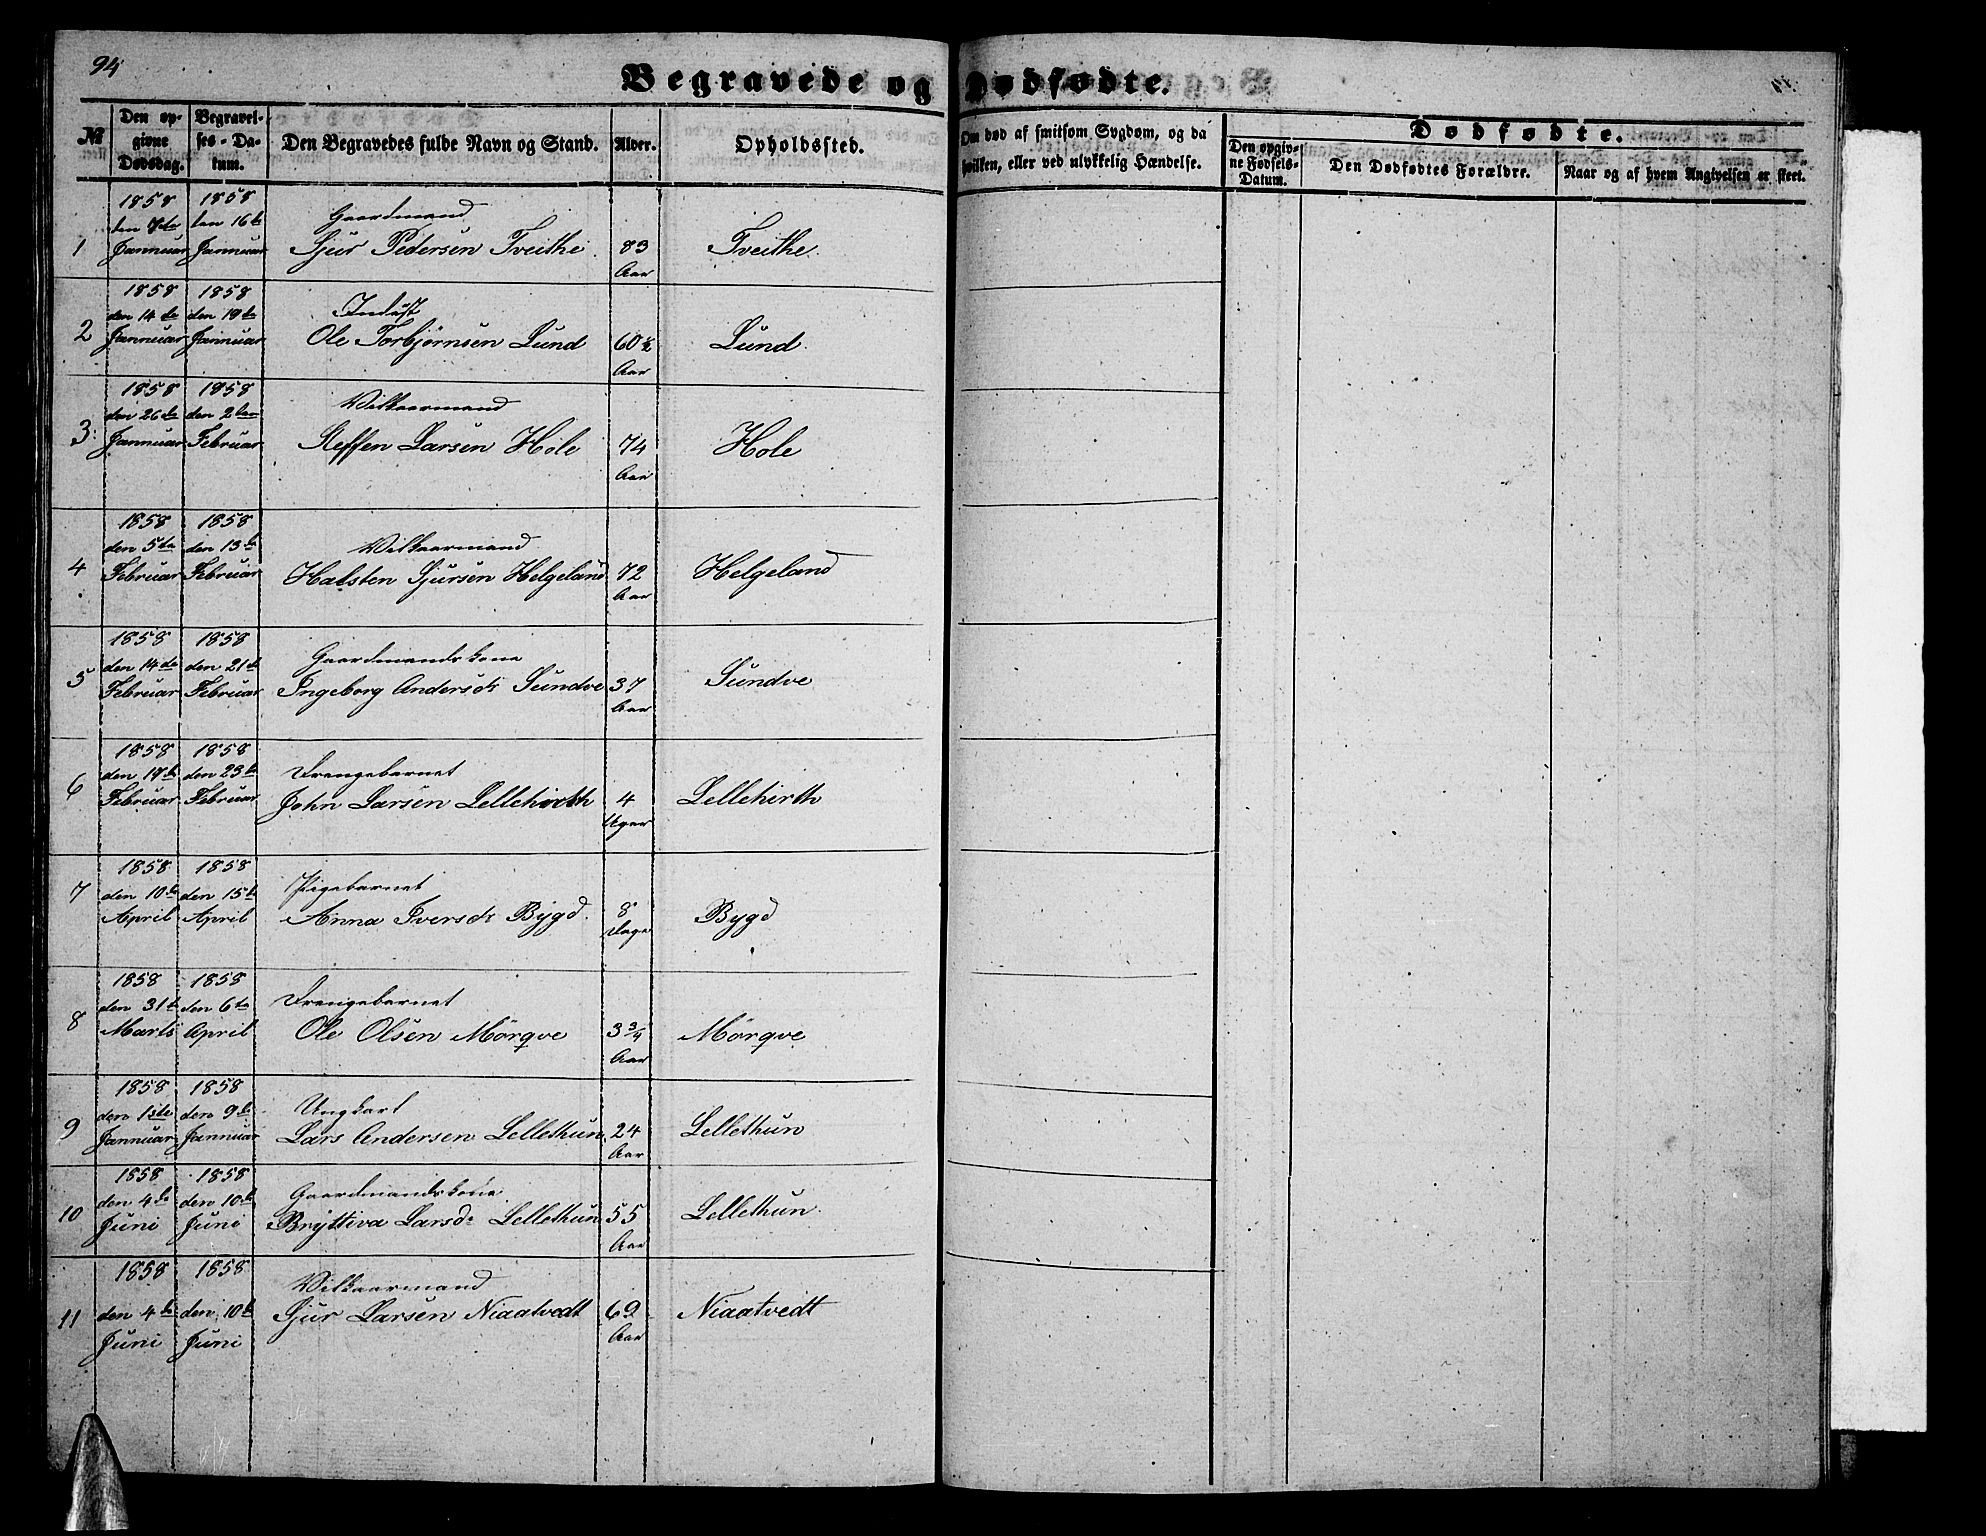 94
Begravede og Dødfødte.
№
Den opgivne Dødsdag.
Begravelses-Datum.
Den Begravedes fulde Navn og Stand.
Alder.
Opholdssted.
Om død af smitsom Sygdom, og da hvilken, eller ved ulykkelig Hændelse.
Dødfødte.
Den opgivne Fødsels-Datum.
Den Dødfødtes Forældre.
Naar og af hvem Angivelsen er skeet.
1858 1858 Gaardmand
den 7de den 16de
1 Jannuar Jannuar Sjur Pedersen Tveithe 83 Tveithe
Aar
1858 1858 Inderst
den 14de den 19de
2 Jannuar Jannuar Ole Torbjørnsen Lund 60½ Lund
Aar
1858 1858 Vilkaarmand
den 26de den 2den
3 Jannuar Februar Steffen Larsen Hole 74 Hole
Aar
1858 1858 Vilkaarmand
den 5te den 13de
4 Februar Februar Halsten Sjursen Helgeland 72 Helgeland
Aar
1858 1858 Gaardmandskone
den 14de den 21de
5 Februar Februar Ingeborg Andersdr Sundve 37 Sundve
Aar
1858 1858 Drengebarnet
den 17de den 23de
6 Februar Februar John Larsen Lellehirth 4 Lellehirth
Uger
1858 1858 Pigebarnet
den 10de den 15de
7 April April Anna Iversdr Bygd 8 Bygd
Dage
1858 1858 Drengebarnet
den 31te den 6te
8 Marts April Ole Olsen Mørqve 3¾ Mørqve
Aar
1858 1858 Ungkarl
den 1ste den 9de
9 Jannuar Jannuar Lars Andersen Lellethun 24 Lellethun
Aar
1858 1858 Gaardmandskone
den 4de den 10de
10 Juni Juni Bryttiva Larsdr Lellethun 55 Lellethun
Aar
1858 1858 Vilkaarmand
11 den 4de den 10de Sjur Larsen Niaatvedt 69 Niaatvedt
Juni Juni Aar